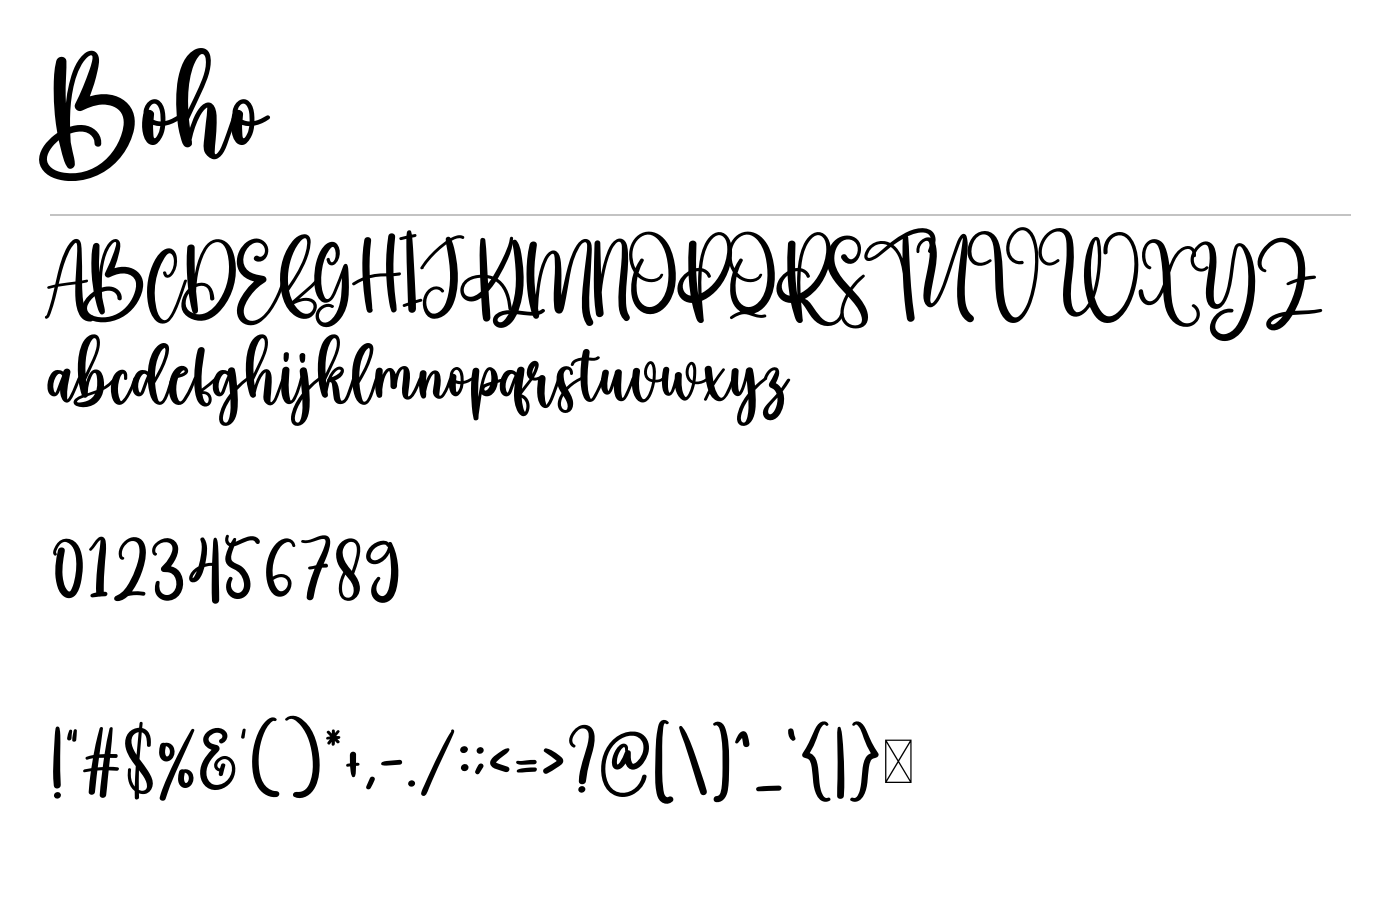 Boho
ABCDEFGHIJKLMNOPQRSTUVWXYZ
abcdefghijklmnopqrstuvwxyz
0123456789
!"#$%&'()*+,-./:;<=>?@[\]^_`{|}